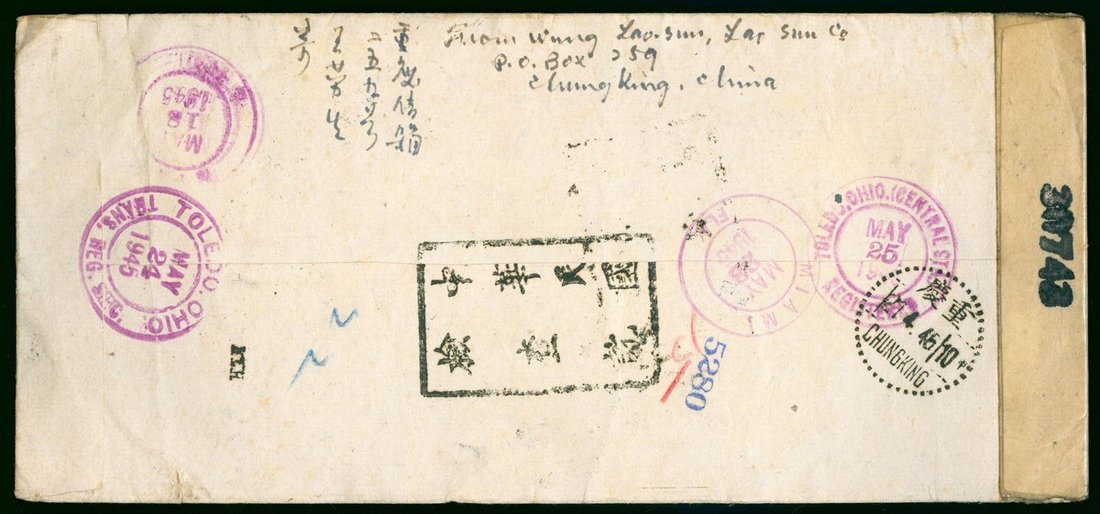 From Wung Lao-sun, Lao Sun Co
P.O. Box 259
Chungking, China
重慶信箱
二五九號
MA
18
1945
TOLEDO OHIO
TRANS. REG.
MAY
24
1945
中華民國
檢查
MIAMI
FLA
MAY
1945
TOLEDO, OHIO. (CENTRAL ST
REGISTERED
MAY
25
重慶
CHUNGKING
5280